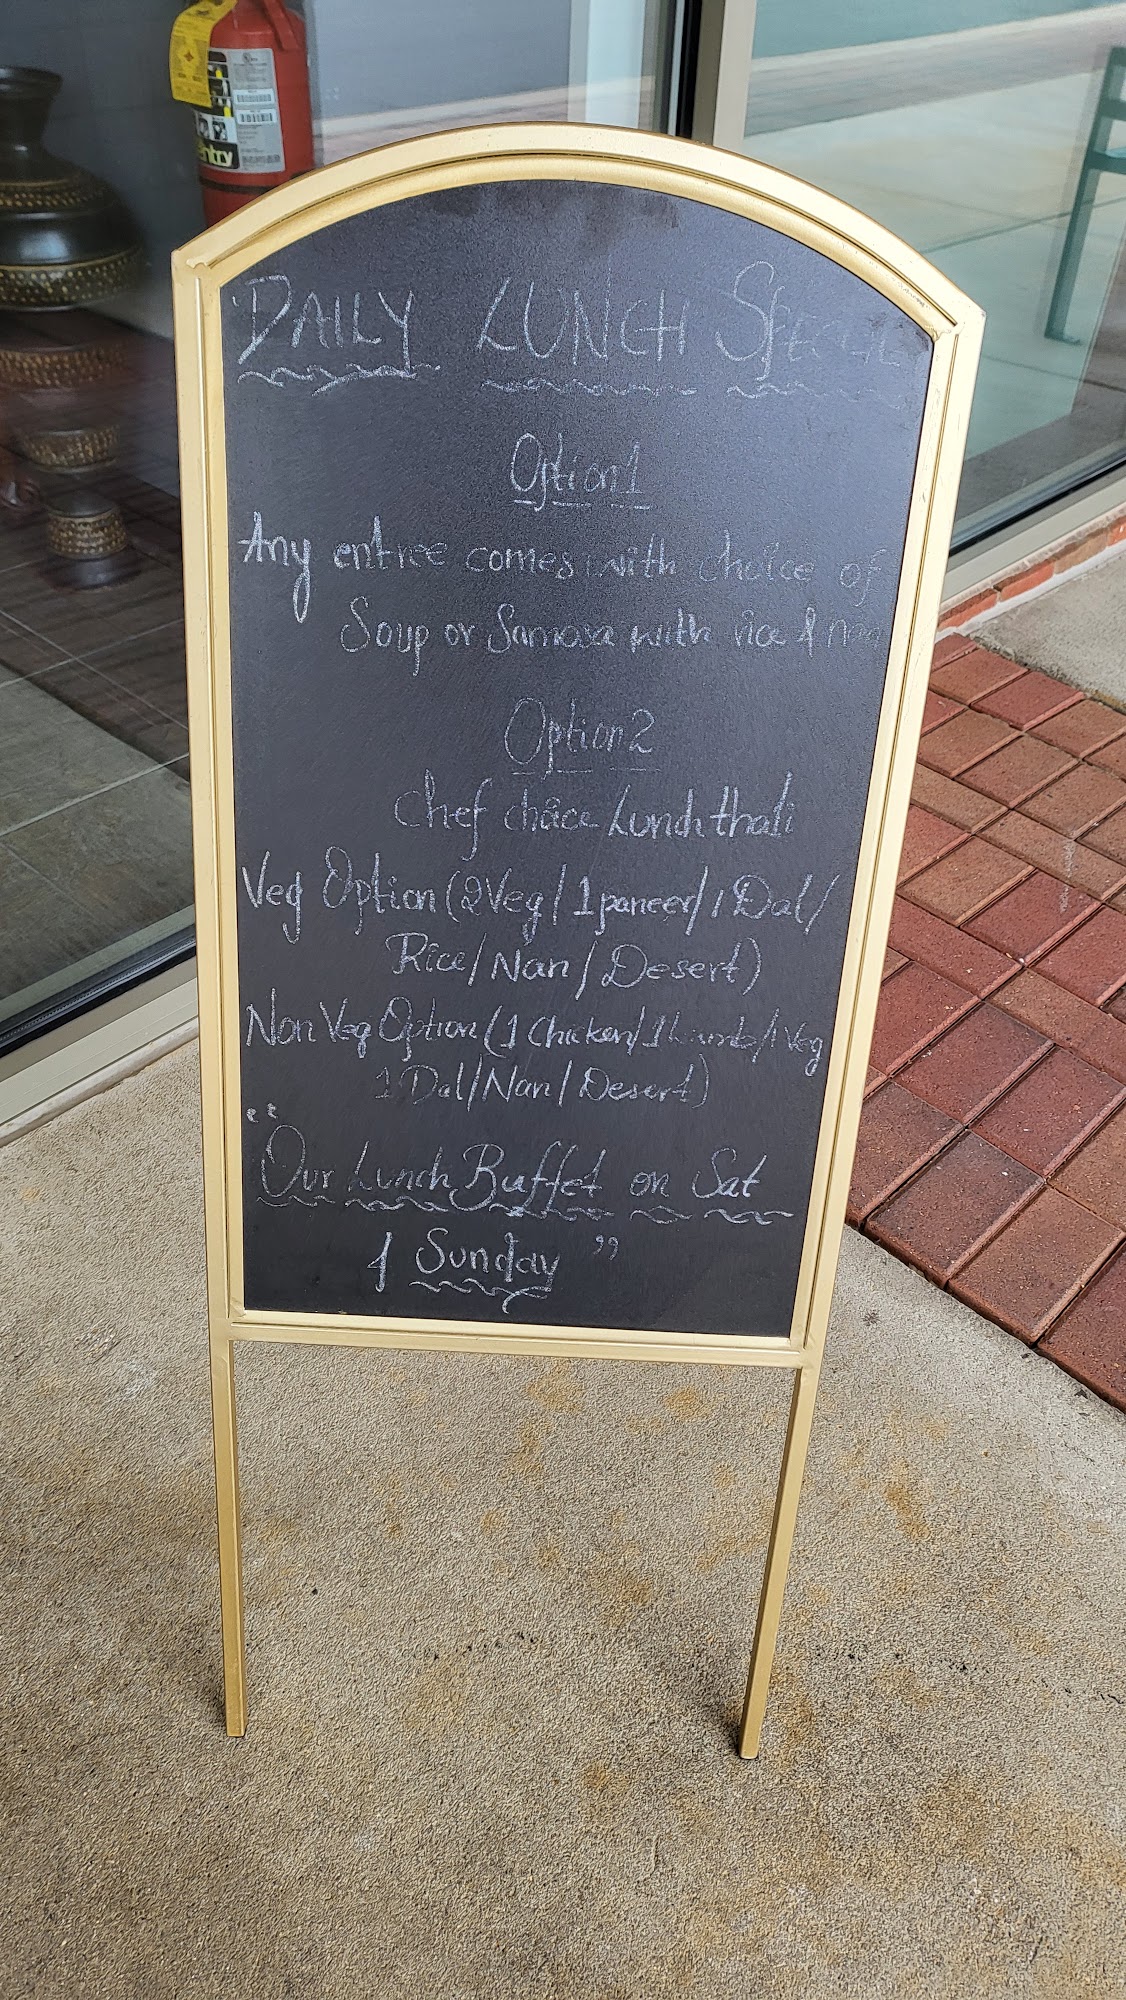 entry
DAILY LUNCH SPECIAL
Option 1
Any entree comes with choice of
Soup or Samosa with rice & nan
Option 2
Chef choice Lunch thali
Veg Option (2 Veg / 1 paneer / 1 Dal /
Rice / Nan / Desert)
Non Veg Option (1 Chicken / 1 Lamb / 1 Veg
1 Dal / Nan / Desert)
"Our Lunch Buffet on Sat
& Sunday"